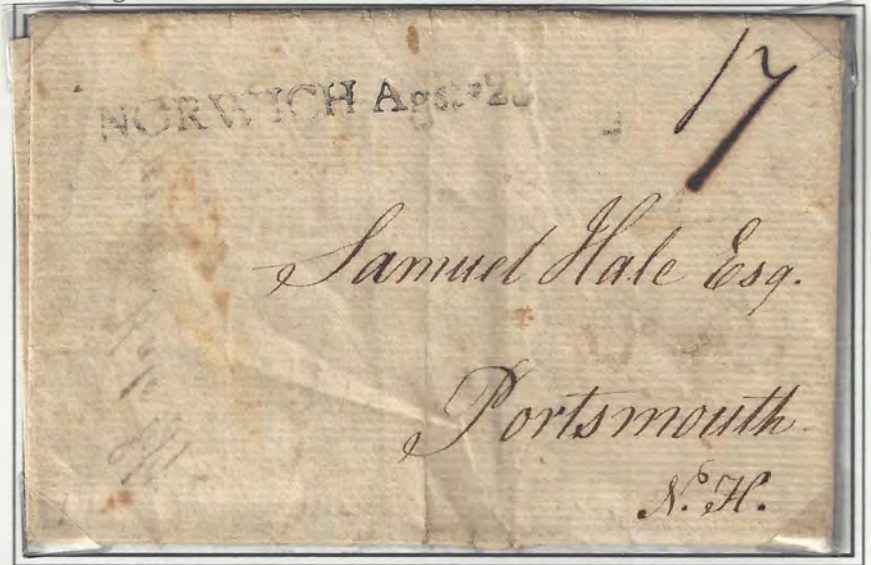 17
NORWICH Agst
Samuel Hale Esq.
Portsmouth
N. H.